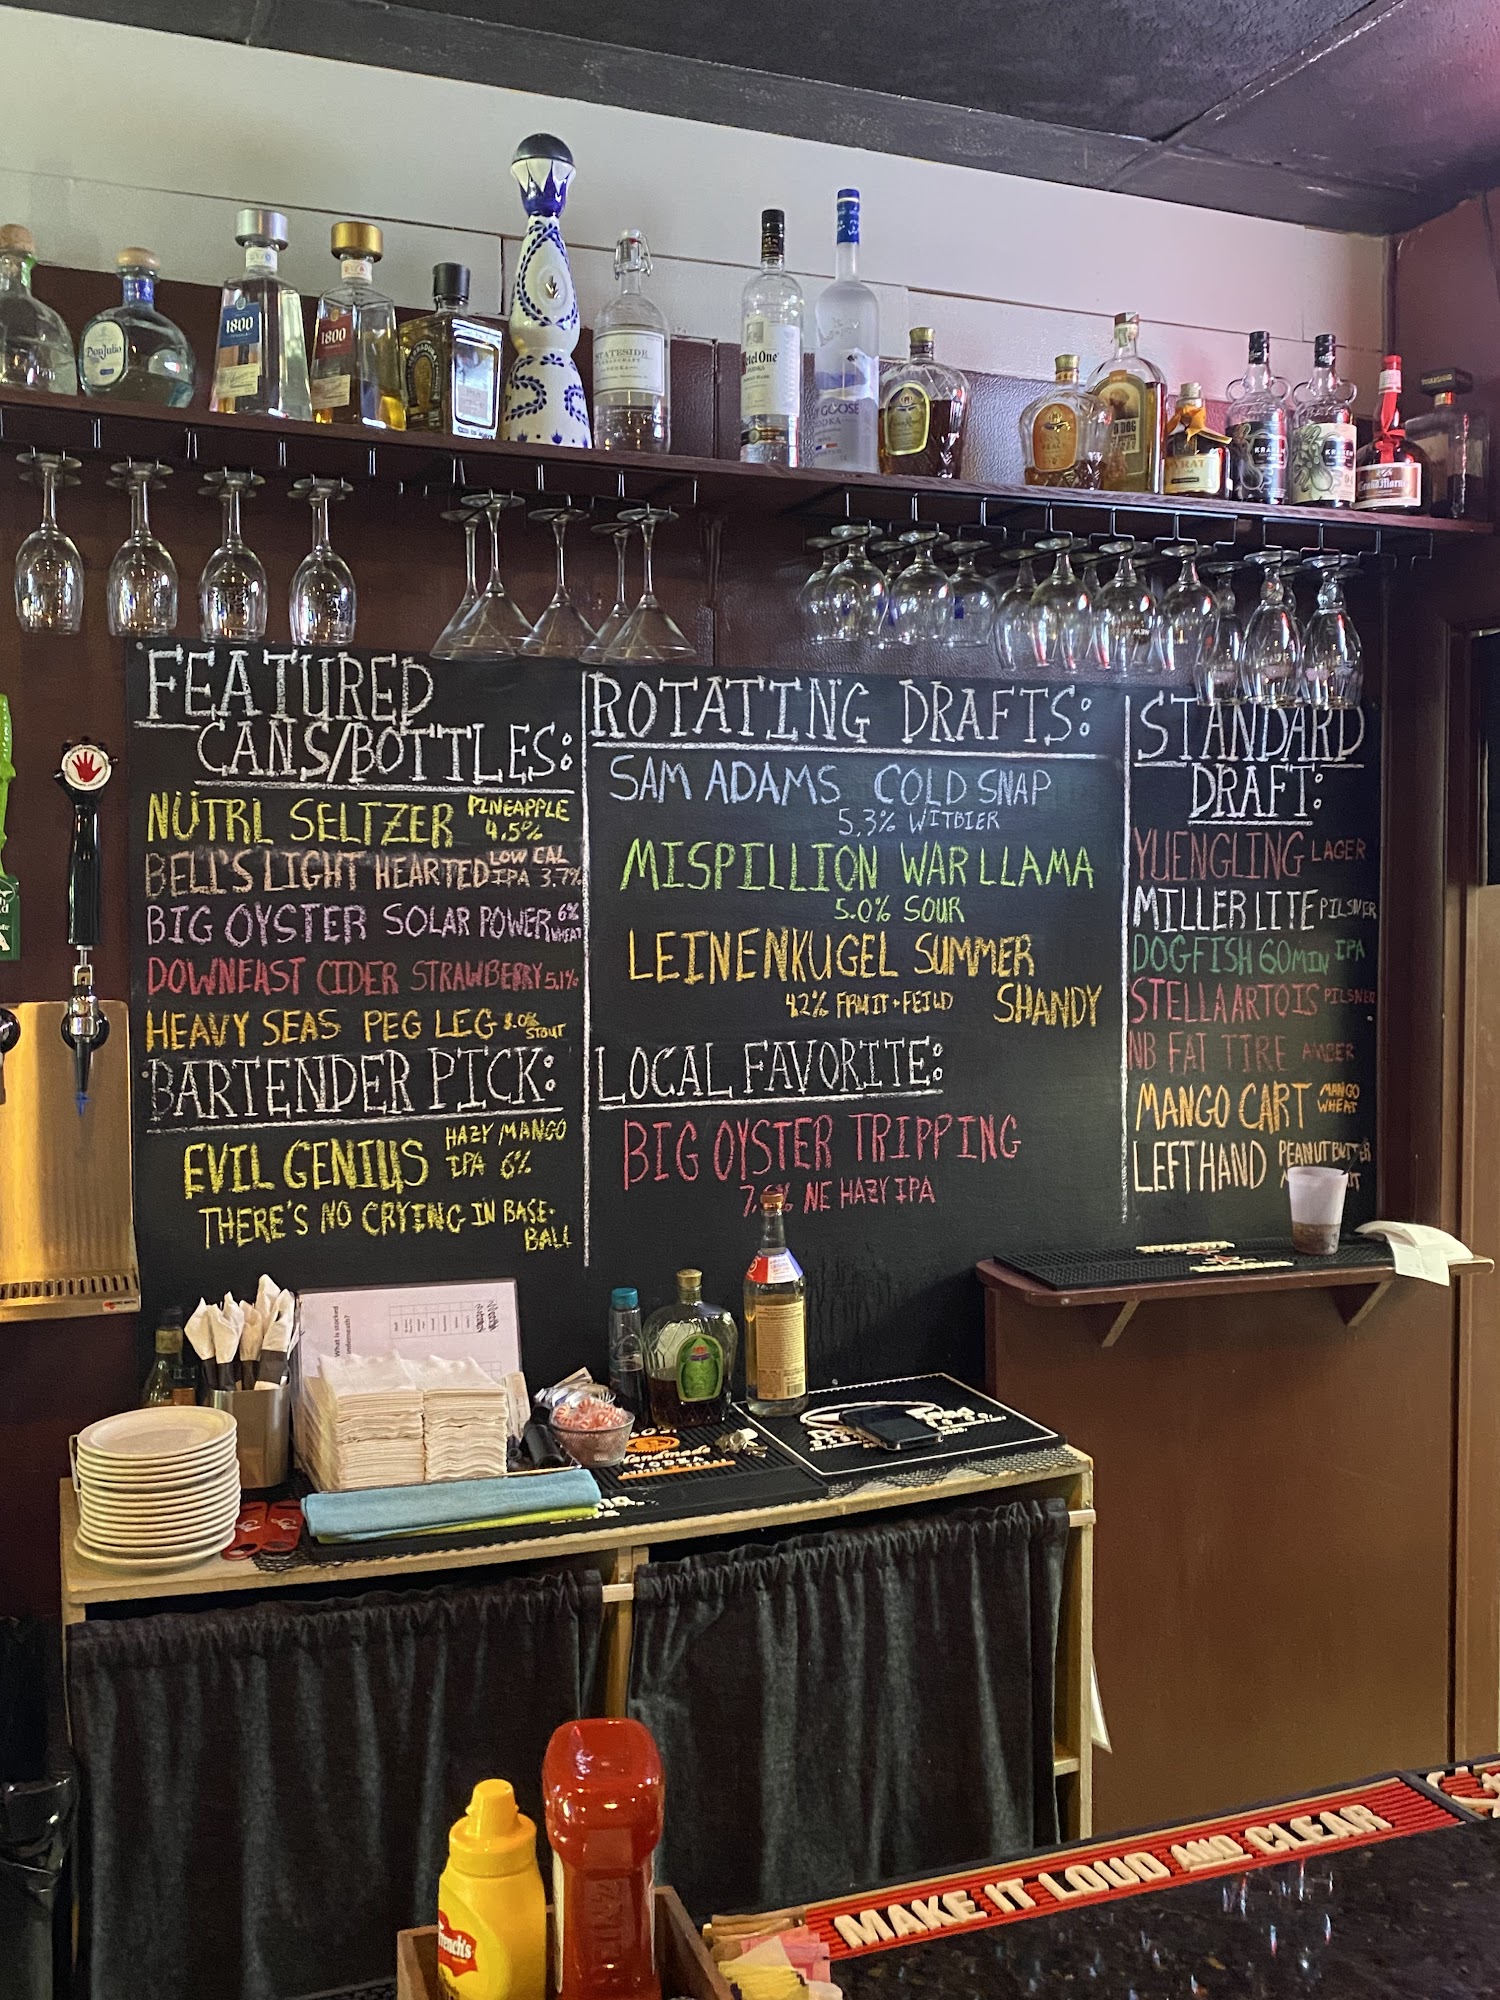 FEATURED
CANS/BOTTLES:
NÜTRL SELTZER PINEAPPLE
4.5%
BELL'S LIGHT HEARTED LOW CAL
IPA 3.7%
BIG OYSTER SOLAR POWER 6%
WHEAT
DOWNEAST CIDER STRAWBERRY 5.1%
HEAVY SEAS PEG LEG 8.0%
STOUT
BARTENDER PICK:
EVIL GENIUS HAZY MANGO
IPA 6%
THERE'S NO CRYING IN BASE-
BALL
ROTATING DRAFTS:
SAM ADAMS COLD SNAP
5.3% WITBIER
MISPILLION WAR LLAMA
5.0% SOUR
LEINENKUGEL SUMMER
4.2% FRUIT + FEILD SHANDY
LOCAL FAVORITE:
BIG OYSTER TRIPPING
NE HAZY IPA
STANDARD
DRAFT:
YUENGLING LAGER
MILLER LITE PILSNER
DOGFISH 60 MIN IPA
STELLA ARTOIS PILSNER
NB FAT TIRE AMBER
MANGO CART MANGO
WHEAT
LEFTHAND PEANUT BUTTER
Don Julio
1800
1800
STATESIDE
VODKA
Ketel One
GOOSE
VODKA
KRAKEN
KRAKEN
What is stocked
underneath?
Handmade
VODKA
French's
MAKE IT LOUD AND CLEAR